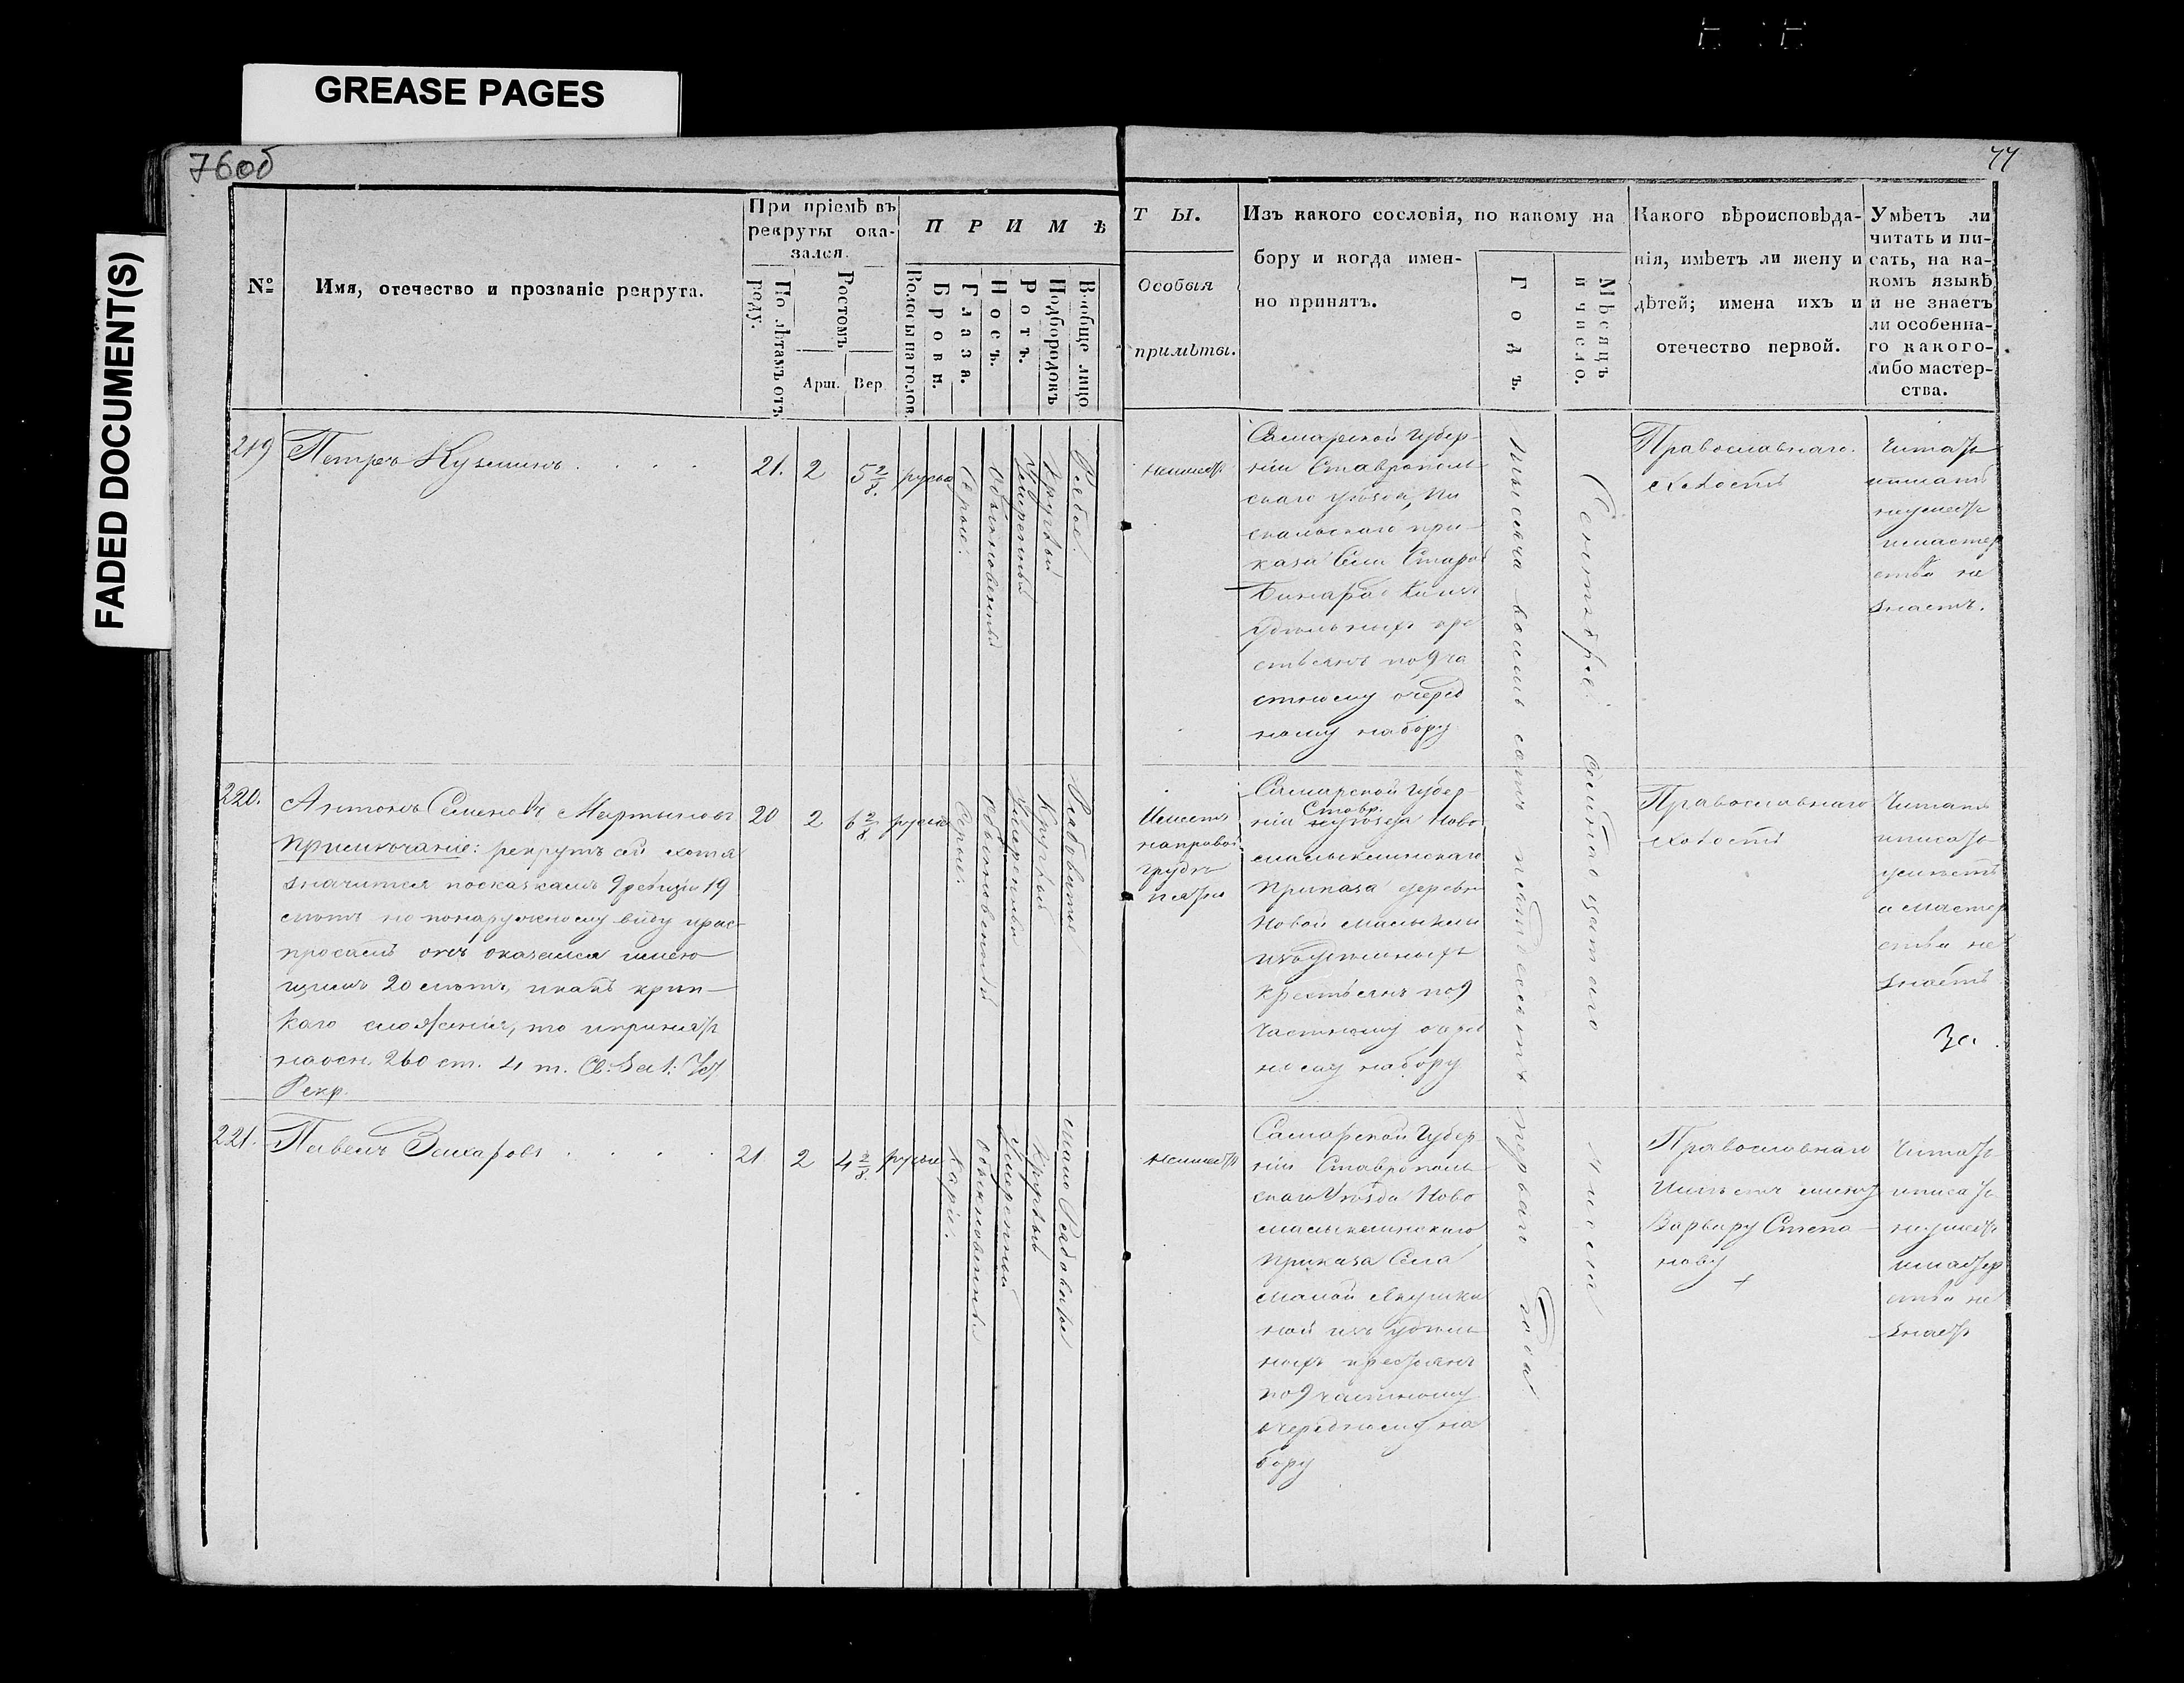 GREASE PAGES
FADED DOCUMENT(S)
76об
77
№
Имя, отечество и прозваніе рекрута.
При пріемѣ въ
рекруты ока-
зался.
По лѣтамъ отъ
роду.
Ростомъ
Арш. Вер.
П Р И М Ѣ
Волосы на голов.
Брови.
Глаза.
Носъ.
Ротъ.
Подбородокъ
Вообще лицо
Т Ы.
Особыя
примѣты.
Изъ какого сословія, по какому на
бору и когда имен-
но принятъ.
Годъ.
Мѣсяцъ
и число.
Какого вѣроисповѣда-
нія, имѣетъ ли жену и
дѣтей; имена ихъ и
отечество первой.
Умѣетъ ли
читать и пи-
сать, на ка-
комъ языкѣ
и не знаетъ
ли особенна-
го какого-
либо мастер-
ства.
219 Петръ Кузьминъ . . . .
21. 2 5 2/8. русые
Серые.
Обыкновенный
Умеренный
Круглой
Рябое.
неимеетъ
Самарской Губер-
ніи Ставрополь-
скаго уѣзда,
скальскаго при-
каза Села Старой
Бинарад
Удѣльныхъ кре
стьянъ под ча
стному очеред
ному набору
тысяча восемь сотъ пятьдесятъ перваго года
Сентября семнадцатаго числа
Православнаго.
холостъ
Читать
иписать
неумеетъ
имастер
ства не
знаетъ.
220. Антонъ Семеновъ Мартыновъ
Примѣчаніе: рекрутъ сей хотя
значится посказкамъ 9 ревизіи 19
лѣтъ но понаружному виду ирас-
просамъ онъ оказался имею-
щимъ 20 лѣтъ, икакъ крѣп-
каго сложенія, то ипринятъ
наосн. 260 ст. 4 т. Св: Зак: Уст
Рекр.
20 2 6 2/8 русые
Серые.
Обыкновенной
Умеренный
Круглой
Рябоватое
Имеетъ
направой
груди
пятно
Самарской Губер-
Ставр.
ніи уѣзда Ново
малыклинскаго
Приказа деревни
Новой малыклы
изъ удѣльныхъ
Крестьянъ под
Частному очеред
ному набору
Православнаго
холостъ
Читать
иписать
умѣетъ
а мастер
ства не
знаетъ
221. Павелъ Захаровъ . . . .
21 2 4 2/8 русые
Каріе.
Обыкновенный
Умеренной
Круглый
мало Рябоватое
неимеетъ
Самарской Губер-
ніи Ставрополь-
скаго Уѣзда Ново
малыклинскаго
Приказа Села
малой Якушки
ной изъ удѣль
ныхъ крестьянъ
под частному
очередному на
бору
Православнаго
Имѣетъ жену
Варвару Степа-
нову
+
Читать
иписать
неумеетъ
имастер
ства не
знаетъ